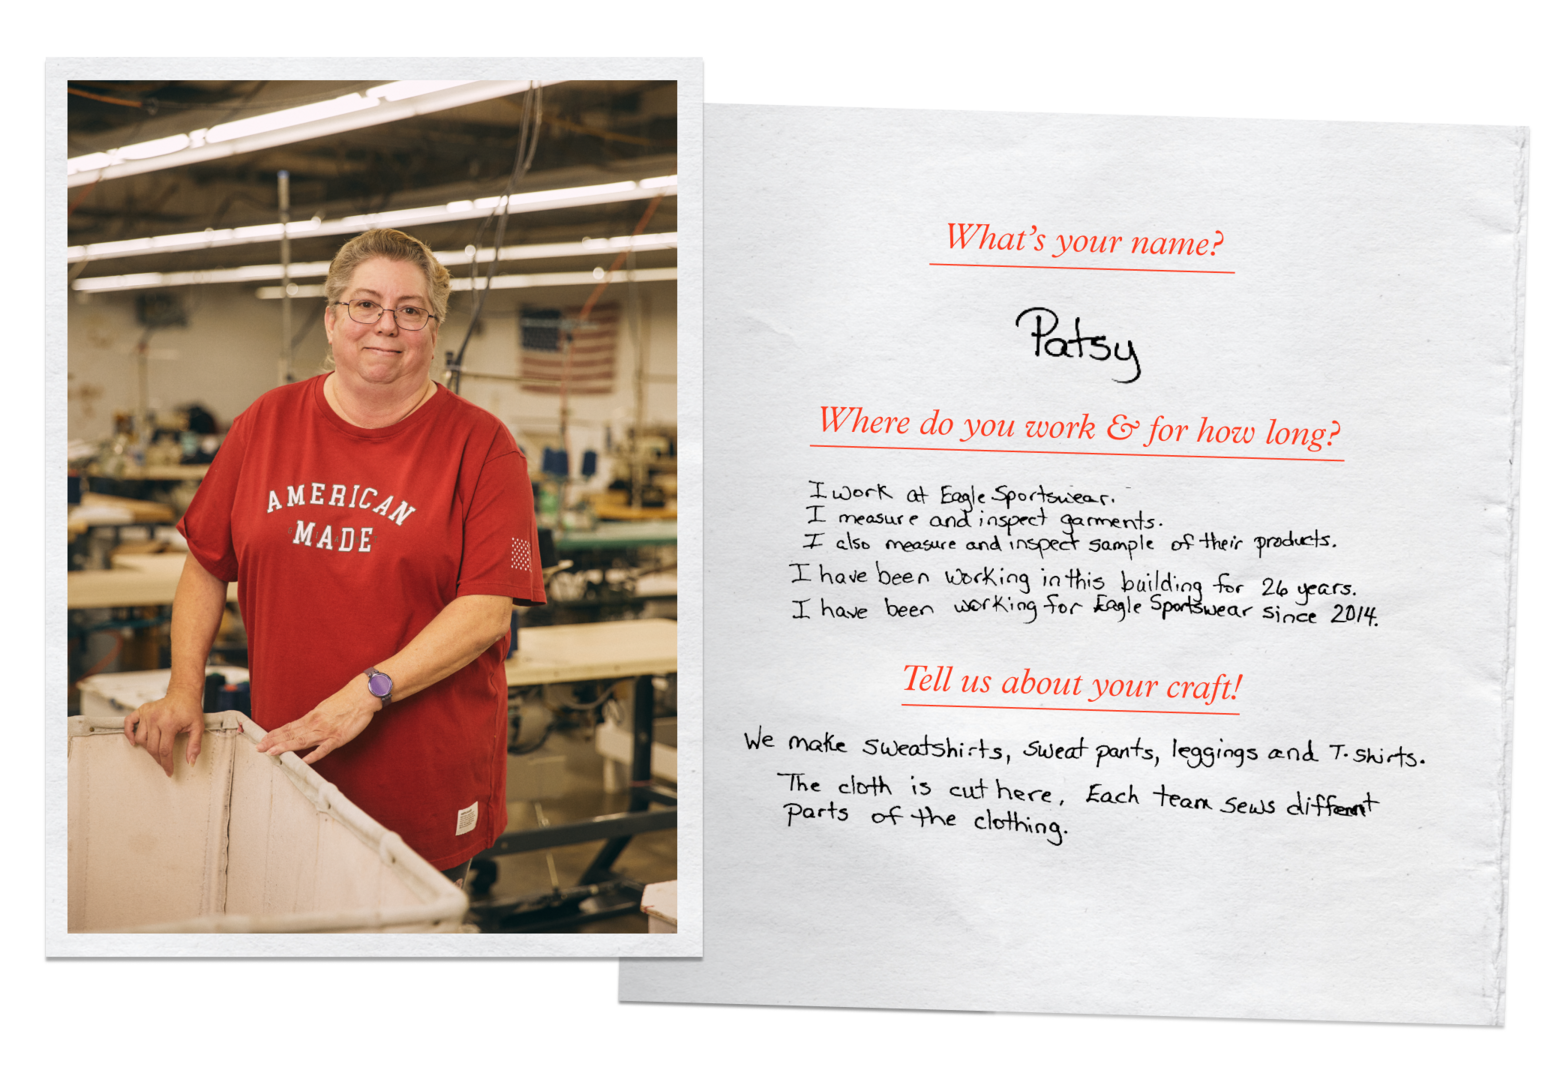 AMERICAN
MADE
What's your name?
Patsy
Where do you work & for how long?
I work at Eagle Sportswear.
I measure and inspect garments.
I also measure and inspect sample of their products.
I have been working in this building for 26 years.
I have been working for Eagle Sportswear since 2014.
Tell us about your craft!
We make sweatshirts, sweat pants, leggings and T-shirts.
The cloth is cut here, Each team sews different
parts of the clothing.